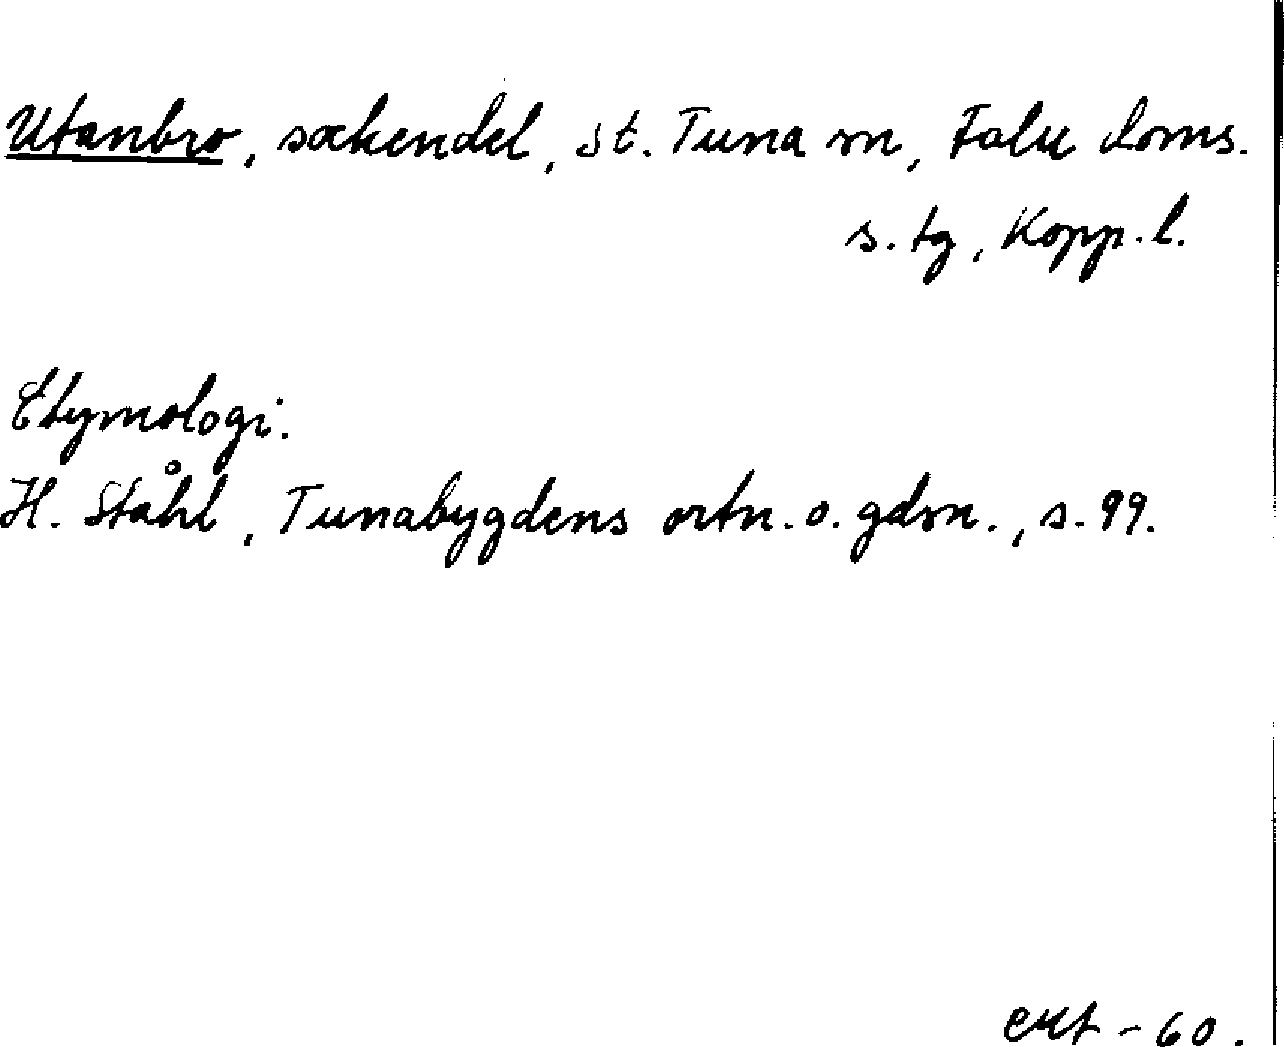 Utanbro, sockendel, St. Tuna sn, Falu doms.
s. tg, Kopp. l.
Etymologi.
H. Ståhl, Tunabygdens ortn. o. gdsn., s. 99.
ext - 60.